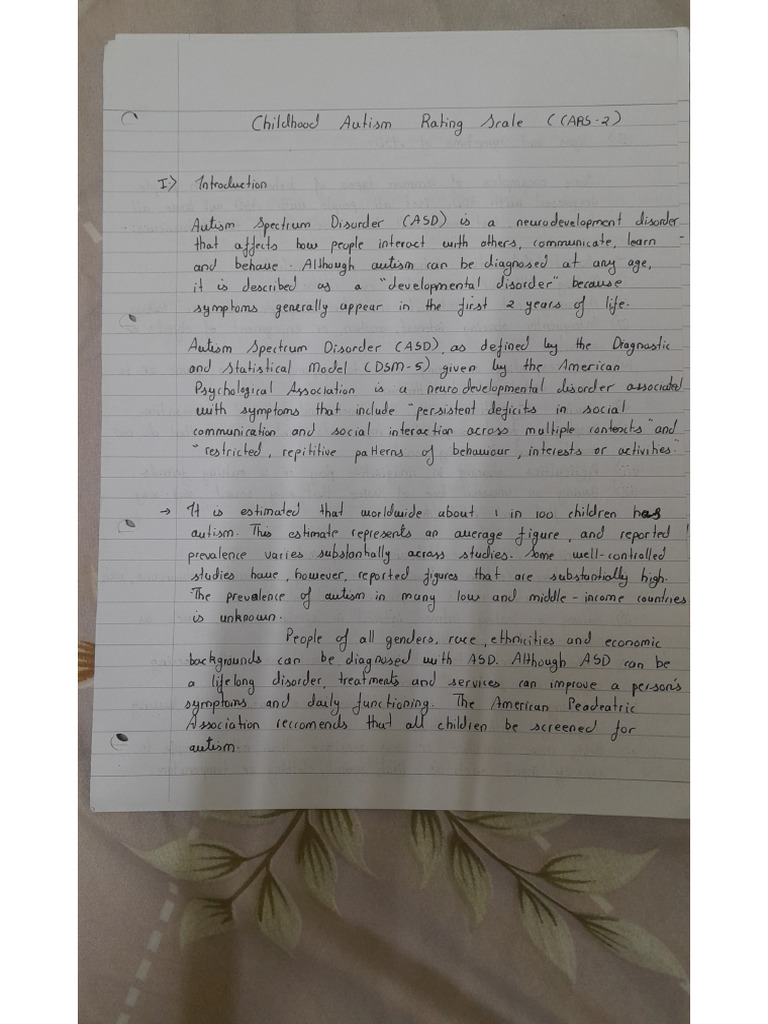 Childhood Autism Rating Scale (CARS-2)
I:> Introduction
Autism Spectrum Disorder (ASD) is a neurodevelopment disorder
that affects how people interact with others, communicate, learn
and behave. Although autism can be diagnosed at any age,
it is described as a "developmental disorder" because
symptoms generally appear in the first 2 years of life.
Autism Spectrum Disorder (ASD), as defined by the Diagnostic
and Statistical Model (DSM-5) given by the American
Psychological Association is a neurodevelopmental disorder associated
with symptoms that include "persistent deficits in social
communication and social interaction across multiple contexts" and
"restricted, repititive patterns of behaviour, interests or activities."
→ It is estimated that worldwide about 1 in 100 children has
autism. This estimate represents an average figure, and reported
prevalence varies substantially across studies. Some well-controlled
studies have, however, reported figures that are substantially high.
The prevalence of autism in many low and middle-income countries
is unknown.
People of all genders, race, ethnicities and economic
backgrounds can be diagnosed with ASD. Although ASD can be
a lifelong disorder, treatments and services can improve a person's
symptoms and daily functioning. The American Peadeatric
Association reccomends that all children be screened for
autism.